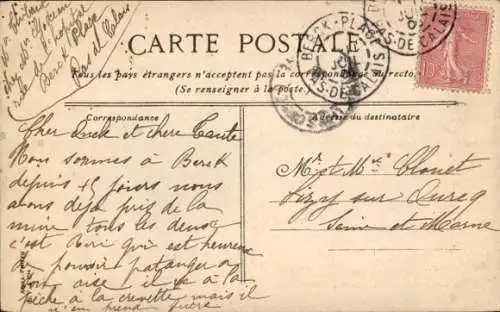 rue de l'hopital
Berck Plage
Pas de Calais
CARTE POSTALE
Tous les pays étrangers n'acceptent pas la correspondance au recto.
(Se renseigner à la poste.)
BERCK-PLAGE
PAS-DE-CALAIS
PAS-DE-CALAIS
10
Correspondance
Adresse du destinataire
Cher et chere Tante
Nous sommes à Berck
depuis 15 jours nous
avons déja pris de la
mine tous les deux
c'est qui est heureux
de pouvoir patauger a
son aise il va à la
pêche à la crevette mais il
n'en prend guère
Mr et Mme Clouet
Lizy sur Ourcq
Seine et Marne